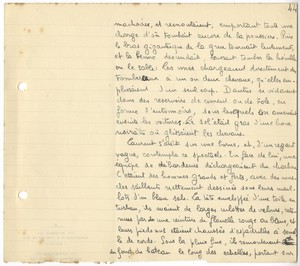 44
machoires, et remontaient, emportant toute une
charge d'où tombait encore de la poussière. Puis
le bras gigantique de la grue tournait lentement,
et la benne descendait, lâchant toute la houille
ou le sable. Les unes chargeaient directement des
tombereaux à un ou deux chevaux, qu'elles em-
plissaient d'un seul coup. D'autres se vidaient
dans des réservoirs de ciment ou de tôle, en
forme d'entonnoirs, sous lesquels on amenait
ensuite les voitures. Le sol était gras d'une boue
noirâtre où glissaient les chevaux.
Laurent s'assit sur une borne, et, d'un regard
vague, contempla ce spectacle. En face de lui, une
équipe de déchargeait du
C'étaient des hommes grands et forts, avec des mus-
cles saillants nettement dessinés sous leurs mail-
lots d'un bleu sale. La tête enveloppée d'une toile en
turban, ils avaient de larges culottes de velours, rete-
nues par une ceinture de flanelle rouge ou bleue, et
leurs pieds nus étaient chaussés d'espadrilles à semel-
le de corde. Sous la pluie fine, ils remontaient du
fond du bateau le long des échelles, portant sur